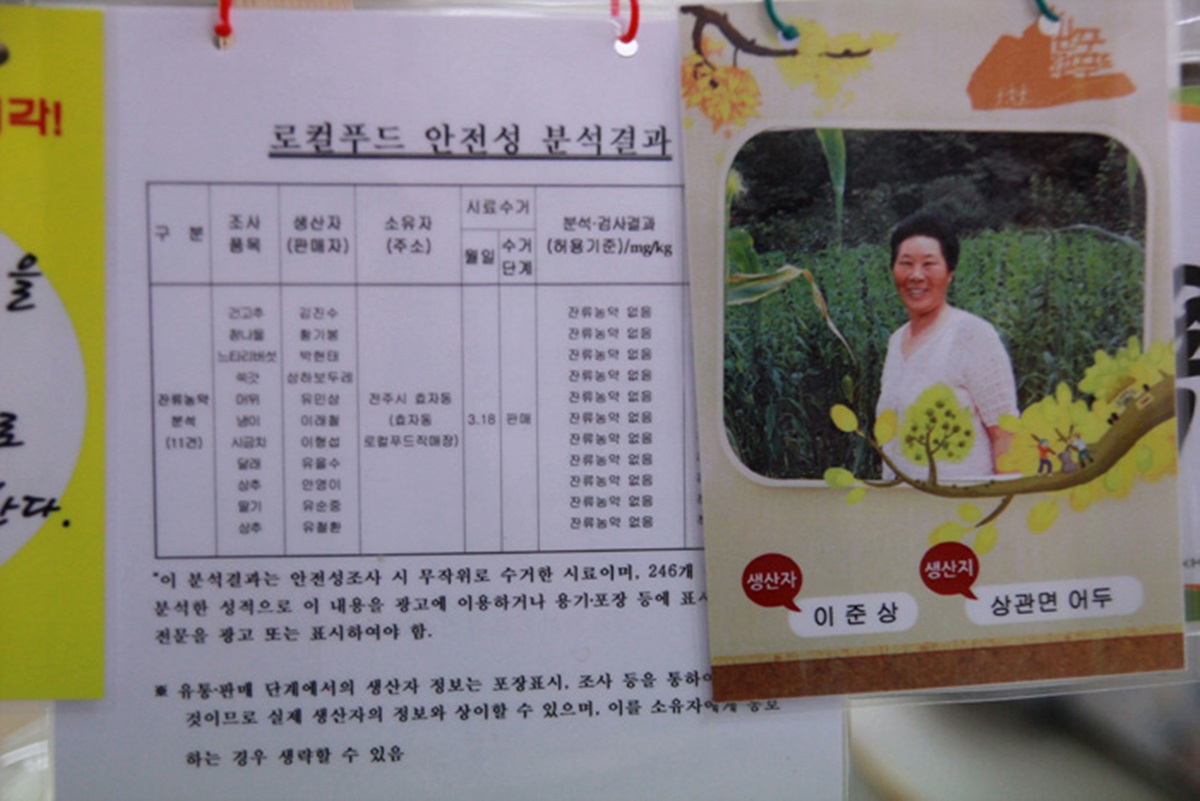 각!
을
로
한다.
로컬푸드 안전성 분석결과
구 분
조사 품목
생산자 (판매자)
소유자 (주소)
시료수거
월일
수거 단계
분석·검사결과 (허용기준)/mg/kg
잔류농약 분석 (11건)
전주시 효자동 (효자동 로컬푸드직매장)
3.18
판매
건고추 김진수 잔류농약 없음
참나물 황기봉 잔류농약 없음
느타리버섯 박현태 잔류농약 없음
쑥갓 상하보두레 잔류농약 없음
머위 유민상 잔류농약 없음
냉이 이래철 잔류농약 없음
시금치 이형섭 잔류농약 없음
달래 유을수 잔류농약 없음
상추 안영이 잔류농약 없음
딸기 유순중 잔류농약 없음
상추 유철환 잔류농약 없음
*이 분석결과는 안전성조사 시 무작위로 수거한 시료이며, 246개
분석한 성적으로 이 내용을 광고에 이용하거나 용기·포장 등에 표시
전문을 광고 또는 표시하여야 함.
※ 유통·판매 단계에서의 생산자 정보는 포장표시, 조사 등을 통하여
것이므로 실제 생산자의 정보와 상이할 수 있으며, 이를 소유자에게 통보
하는 경우 생략할 수 있음
생산자
이 준 상
생산지
상관면 어두